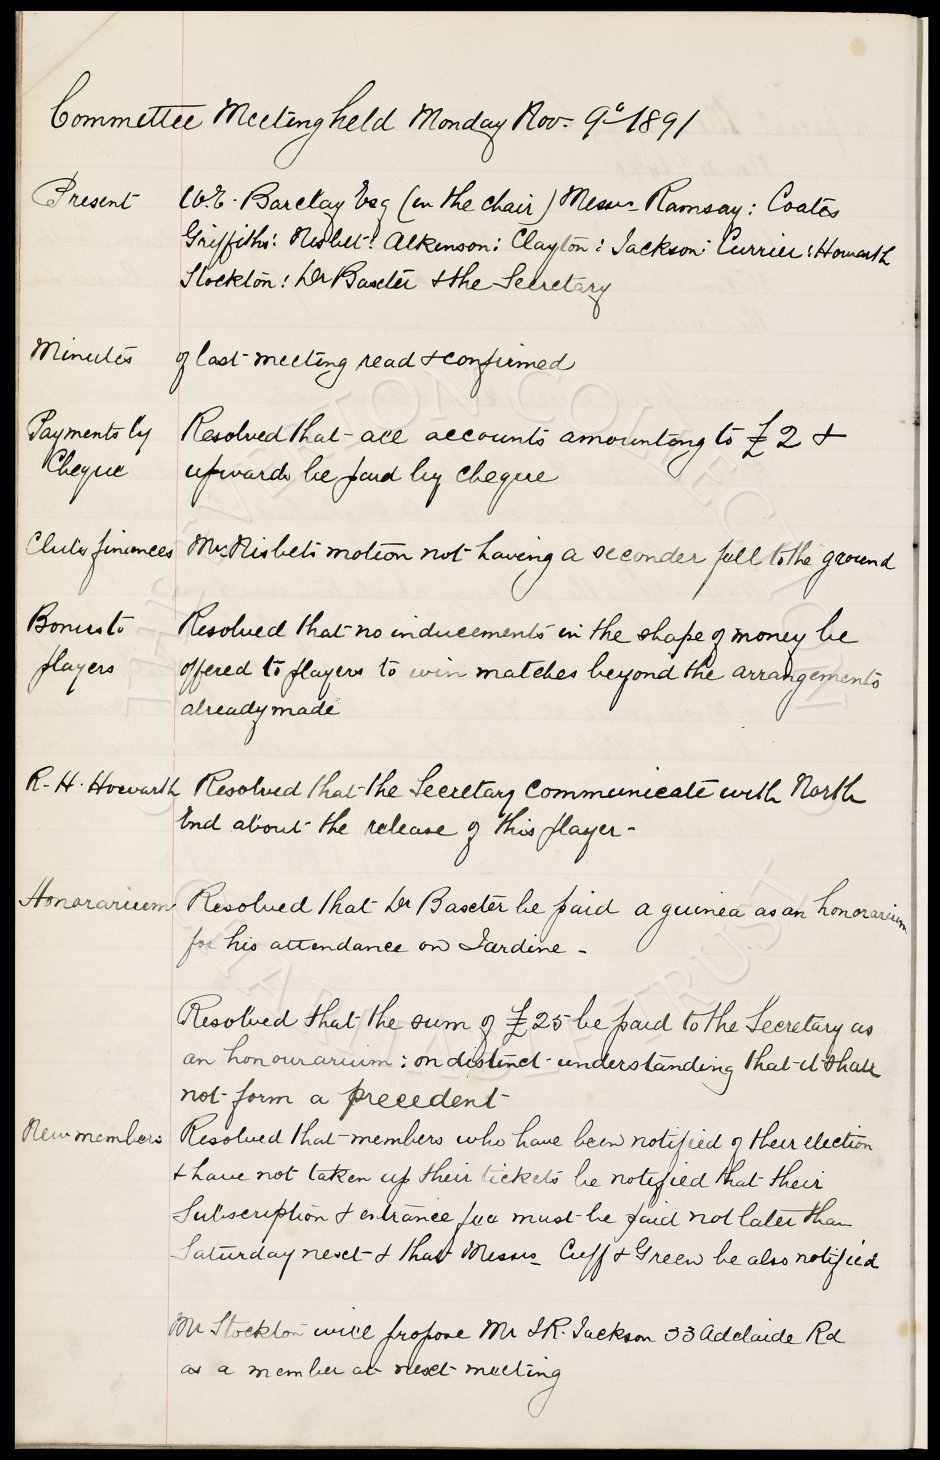 Committee Meeting held Monday Nov. 9° 1891
Present W.E. Barclay Esq (in the chair) Messrs Ramsay: Coates
Griffiths: Nisbet: Atkinson: Clayton: Jackson: Currier: Howarth
Stockton: Dr Baxter & the Secretary
Minutes of last meeting read & confirmed
Payments by Resolved that all accounts amounting to £2 &
Cheque upwards be paid by cheque
Clubs finances Mr Nisbets motion not having a seconder fell to the ground
Bonus to Resolved that no inducements in the shape of money be
players offered to players to win matches beyond the arrangements
already made
R. H. Howarth Resolved that the Secretary communicate with North
End about the release of this player -
Honorarium Resolved that Dr Baxter be paid a guinea as an honorarium
for his attendance on Jardine -
Resolved that the sum of £25 be paid to the Secretary as
an honourarium: on distinct understanding that it shall
not form a precedent
New members Resolved that members who have been notified of their election
& have not taken up their tickets be notified that their
Subscription & entrance fee must be paid not later than
Saturday next & that Messrs Cuff & Green be also notified
Mr Stockton will propose Mr J.R. Jackson 33 Adelaide Rd
as a member at next meeting
THE EVERTON COLLECTION
CHARITABLE TRUST